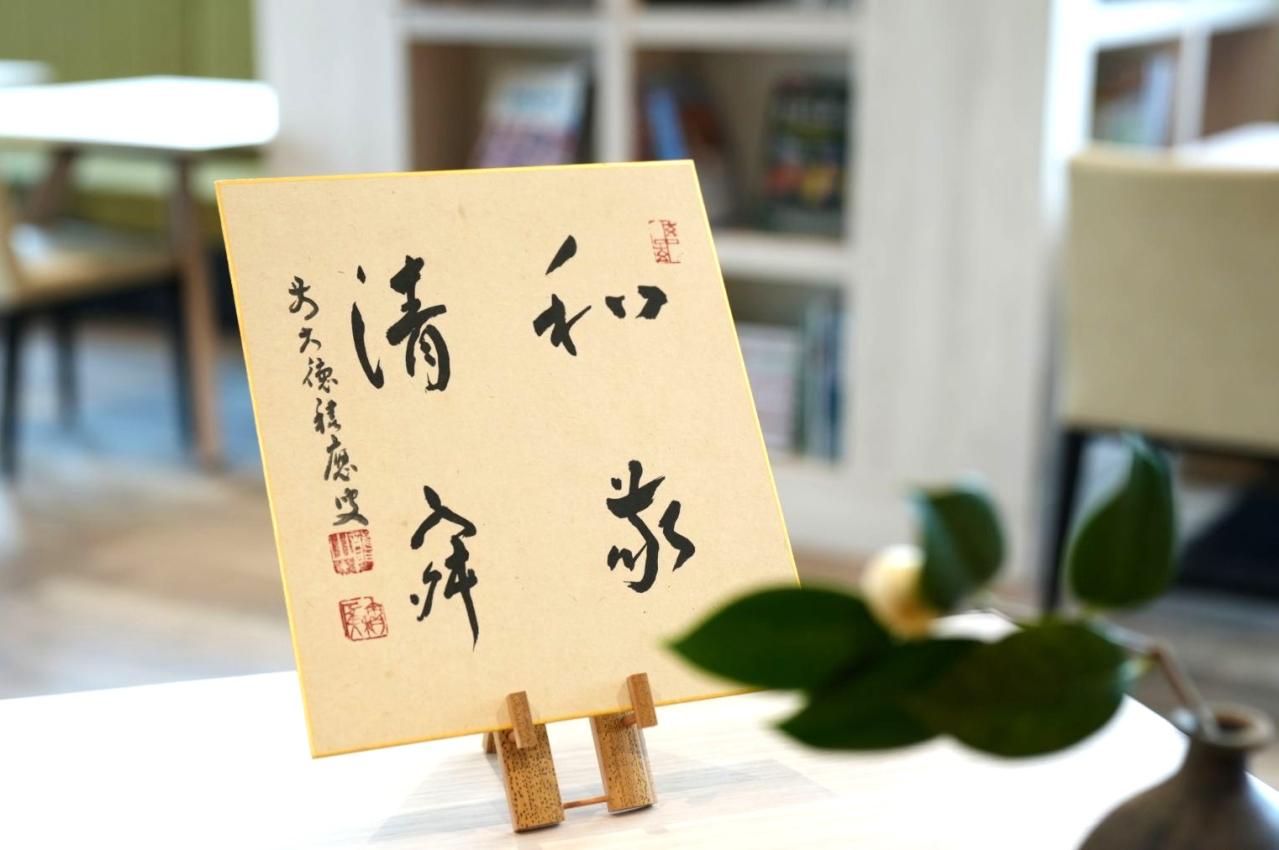 和敬
清寂
前大徳積應叟